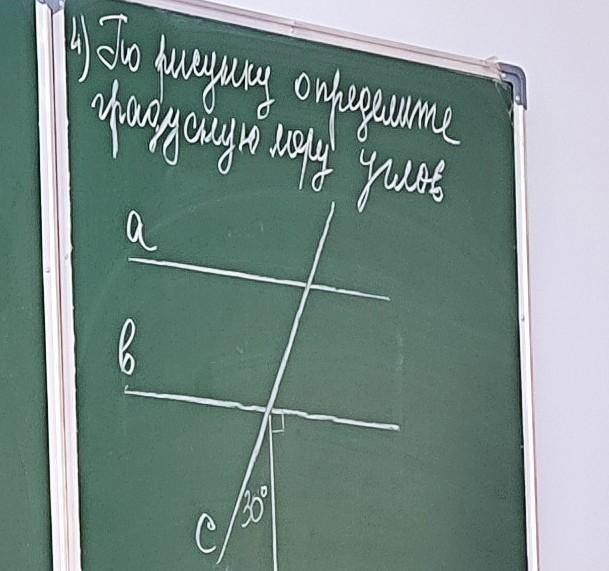 4) По рисунку определите
градусную меру углов
a
b
30°
c